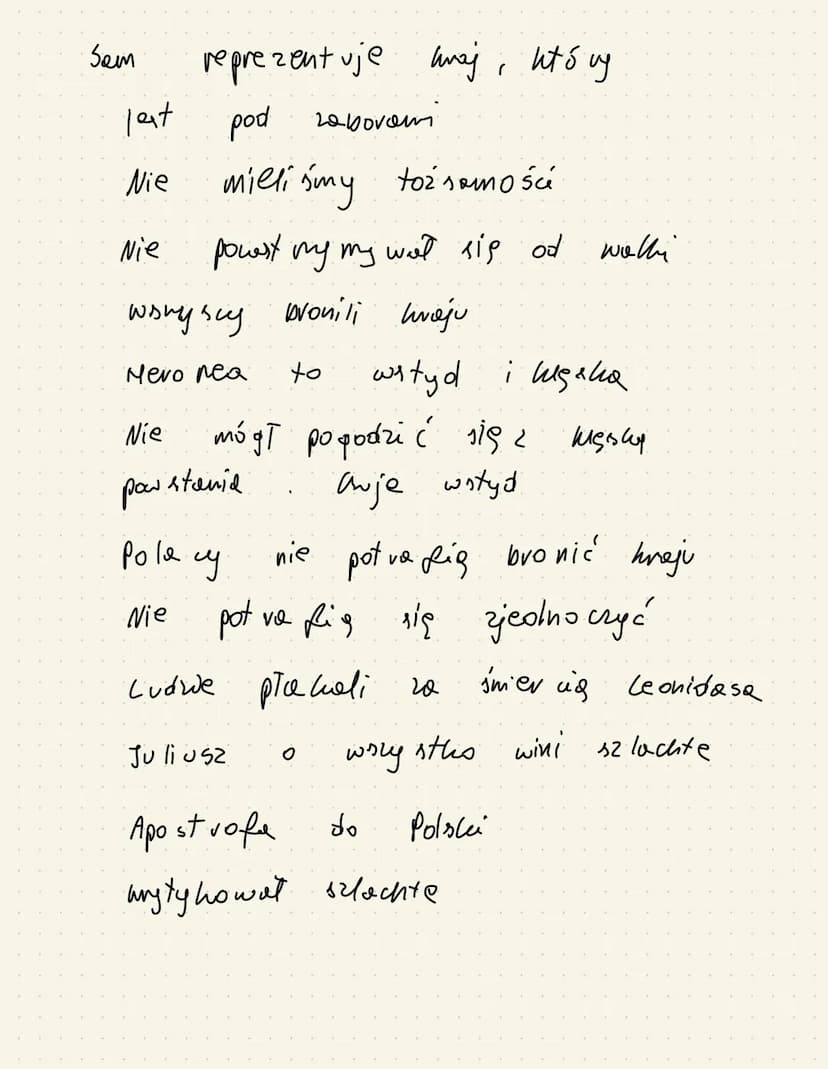 Sam reprezentuje kraj, który
jest pod zaborami
Nie mieliśmy tożsamości
Nie powstrzymywał się od walki
wszyscy bronili kraju
Cheronea to wstyd i klęska
Nie mógł pogodzić się z klęską
powstania. Czuje wstyd
Polacy nie potrafią bronić kraju
Nie potrafią się zjednoczyć
Ludzie płakali za śmiercią Leonidasa
Juliusz o wszystko wini szlachtę
Apostrofa do Polski
krytykował szlachtę